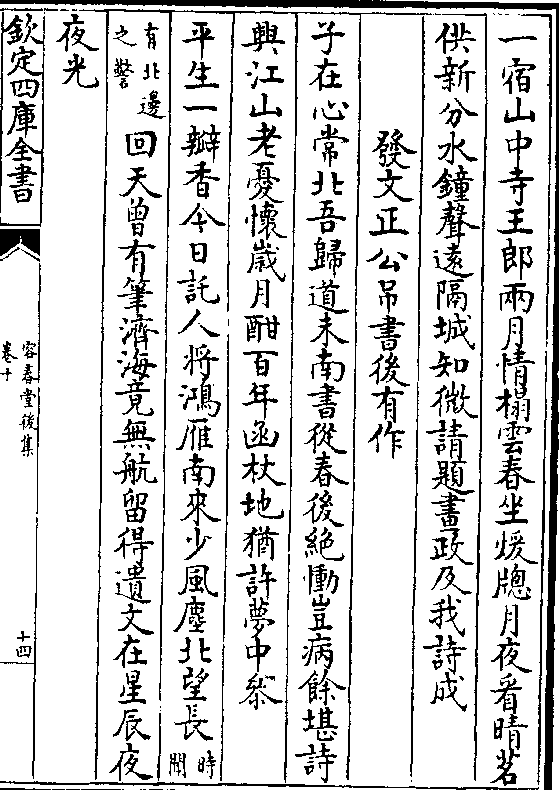 一宿山中寺王郎兩月情榻雲春坐煖牕月夜看晴茗
供新分水鐘聲遠隔城知微請題畫政及我詩成
發文正公吊書後有作
子在心常北吾歸道未南書從春後絶慟豈病餘堪詩
興江山老憂懷歲月酣百年函杖地猶許夢中叅
平生一瓣香今日託人將鴻雁南來少風塵北望長時聞
有北邊之警回天曾有筆濟海竟無航留得遺文在星辰夜
夜光
欽定四庫全書
容春堂後集
卷十
十四